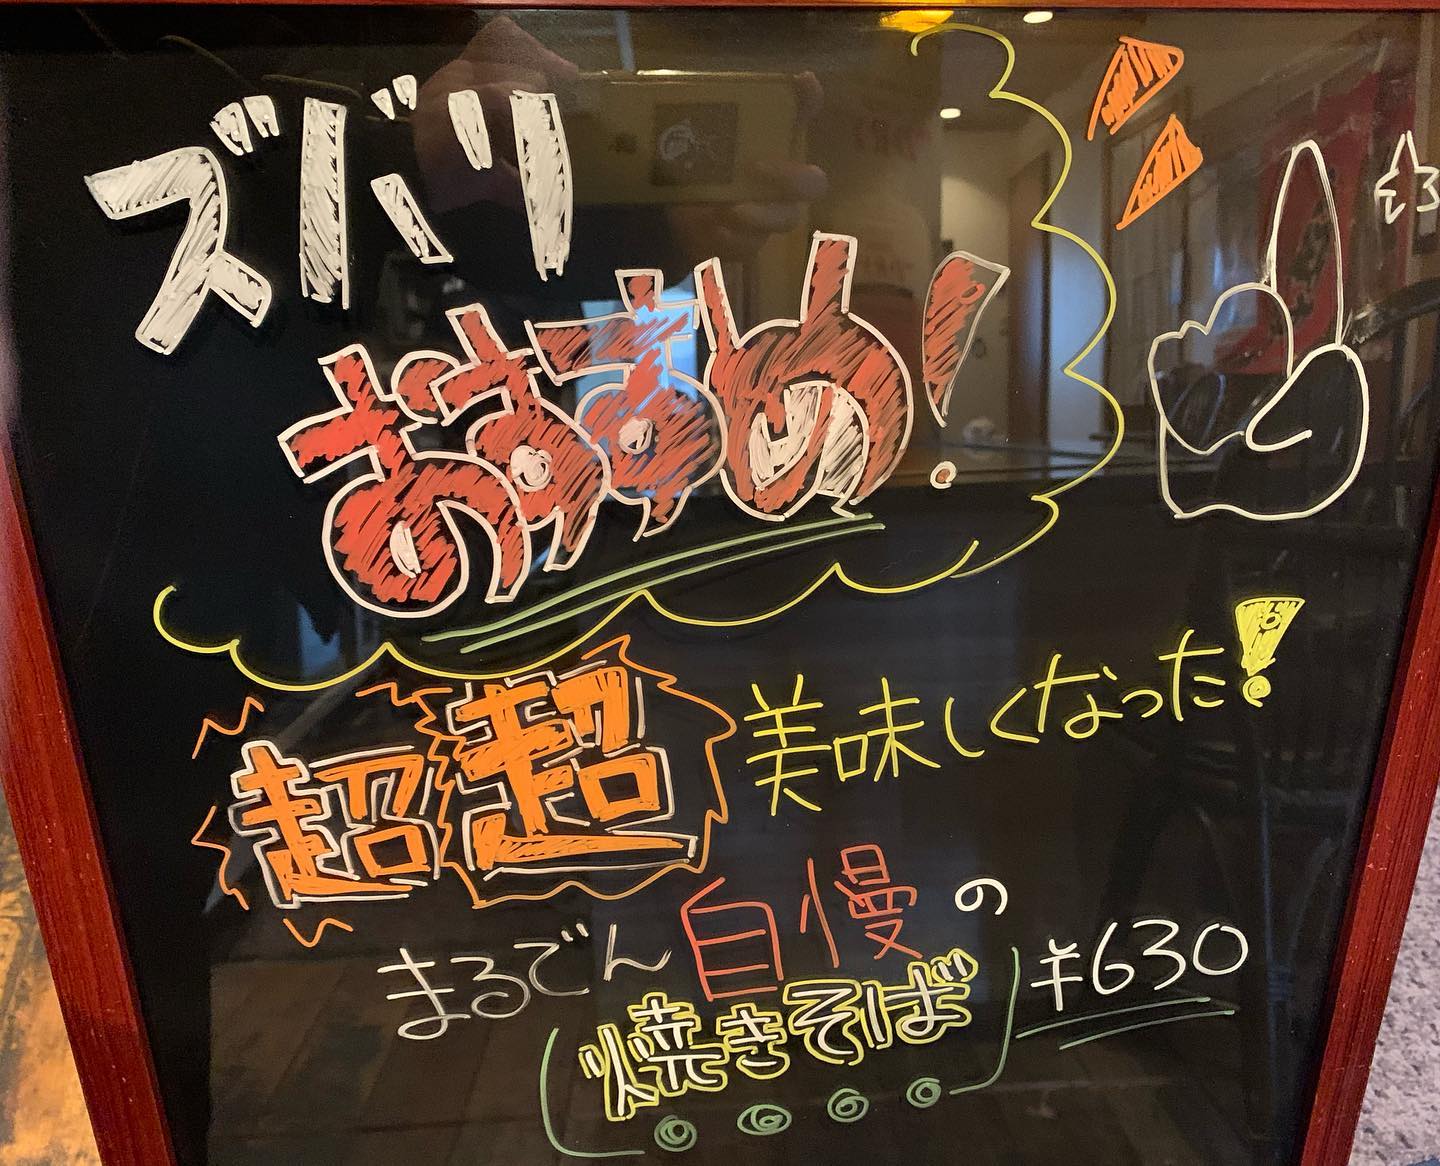 ズバリ
おすすめ!
超超美味しくなった!
まるでん自慢の
焼きそば ¥630